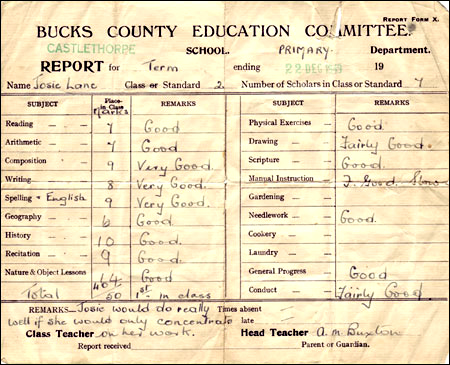 REPORT FORM X.
BUCKS COUNTY EDUCATION COMMITTEE.
CASTLETHORPE SCHOOL. PRIMARY. Department.
REPORT for Term ending 22 DEC 19
Name Josie Lane Class or Standard 2. Number of Scholars in Class or Standard 7
SUBJECT Place in Class Marks REMARKS SUBJECT REMARKS
Reading 7 Good Physical Exercises Good
Arithmetic 7 Good Drawing Fairly Good.
Composition 9 Very Good. Scripture Good.
Writing 8 Very Good. Manual Instruction F. Good. Slow
Spelling + English 9 Very Good. Gardening
Geography 6 Good. Needlework Good.
History 10 Good. Cookery
Recitation 9 Good. Laundry
Nature & Object Lessons Good General Progress Good
Total 50 1st in class Conduct Fairly Good
REMARKS Josie would do really Times absent
well if she would only concentrate late
Class Teacher on her work. Head Teacher A.M. Buxton
Report received Parent or Guardian.